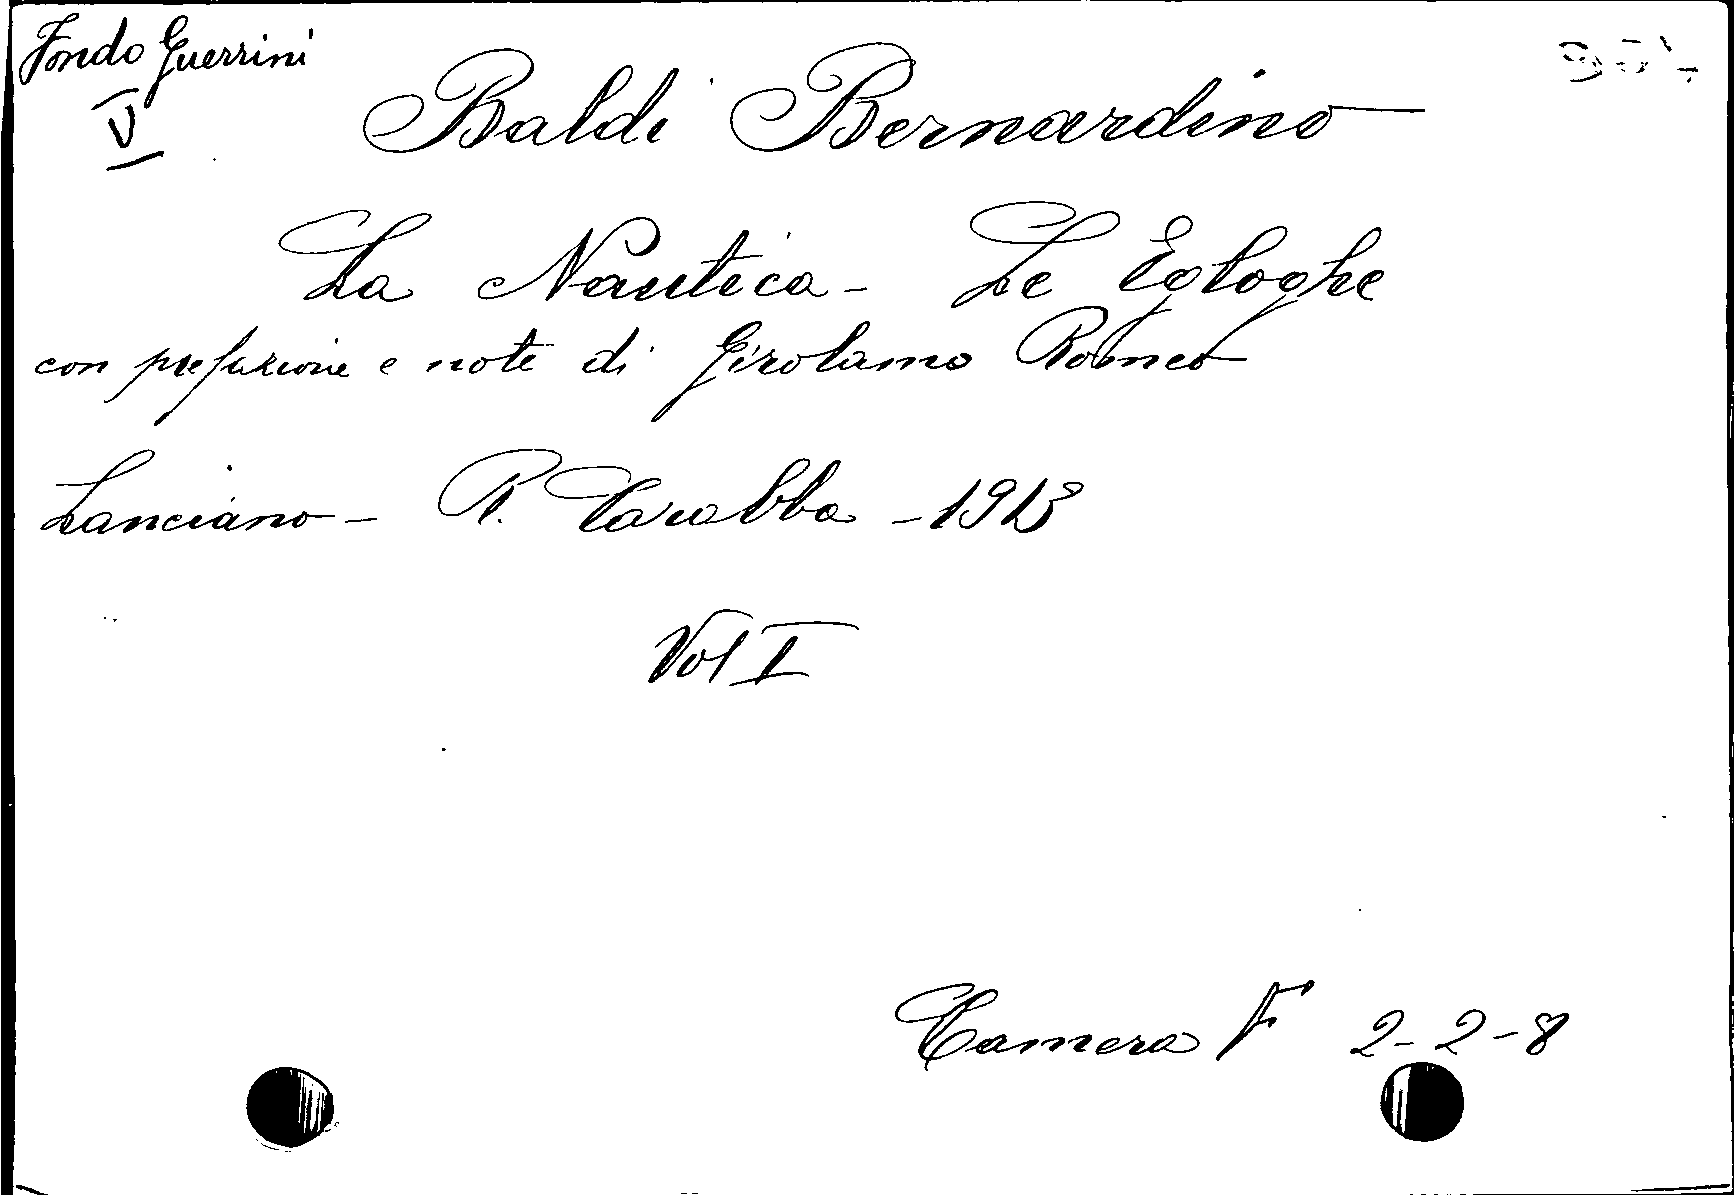 Fondo Guerrini
V
Baldi Bernardino
La Nautica - Le Egloghe
con prefazione e note di Girolamo Romeo
Lanciano - R. Carabba - 1913
Vol I
Camera F 2-2-8